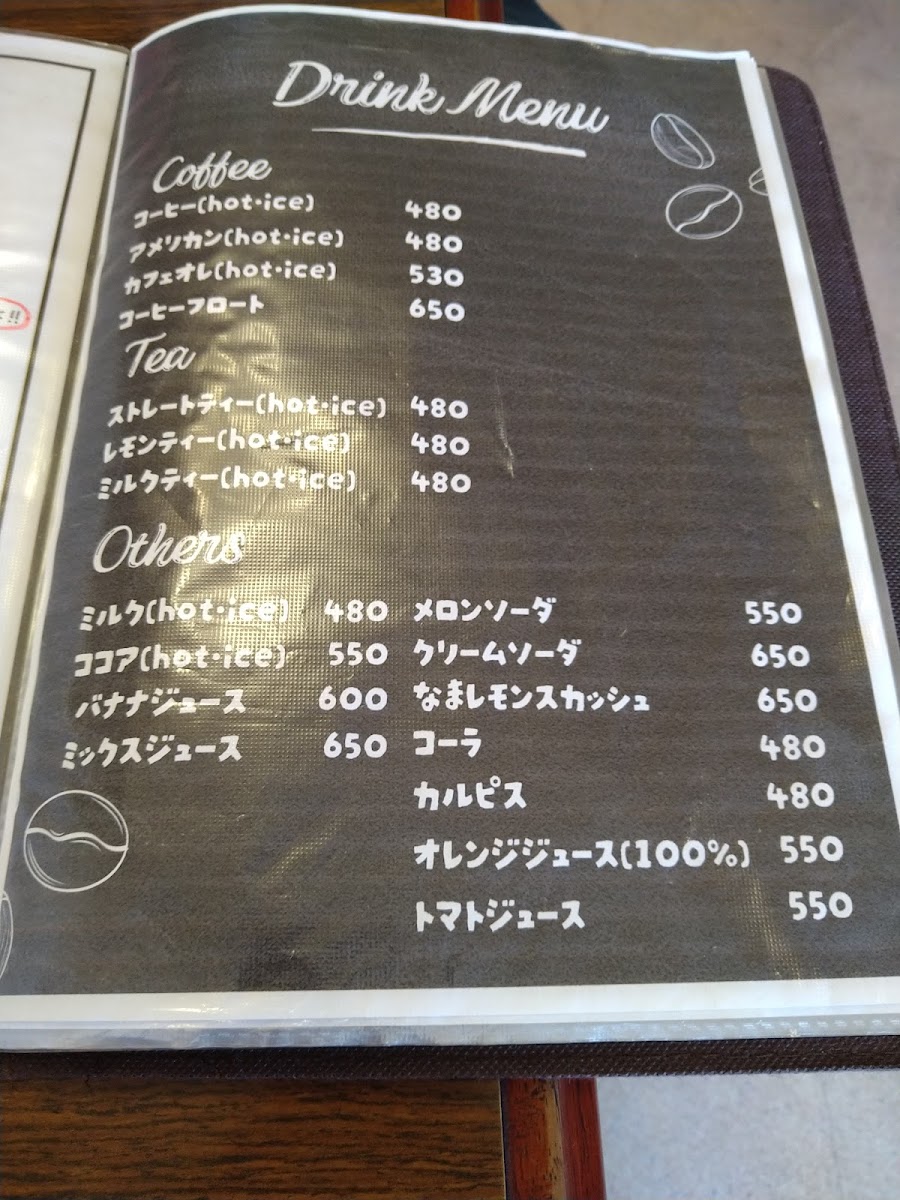 Drink Menu
Coffee
コーヒー(hot・ice) 480
アメリカン(hot・ice) 480
カフェオレ(hot・ice) 530
コーヒーフロート 650
Tea
ストレートティー(hot・ice) 480
レモンティー(hot・ice) 480
ミルクティー(hot・ice) 480
Others
ミルク(hot・ice) 480
ココア(hot・ice) 550
バナナジュース 600
ミックスジュース 650
メロンソーダ 550
クリームソーダ 650
なまレモンスカッシュ 650
コーラ 480
カルピス 480
オレンジジュース(100%) 550
トマトジュース 550